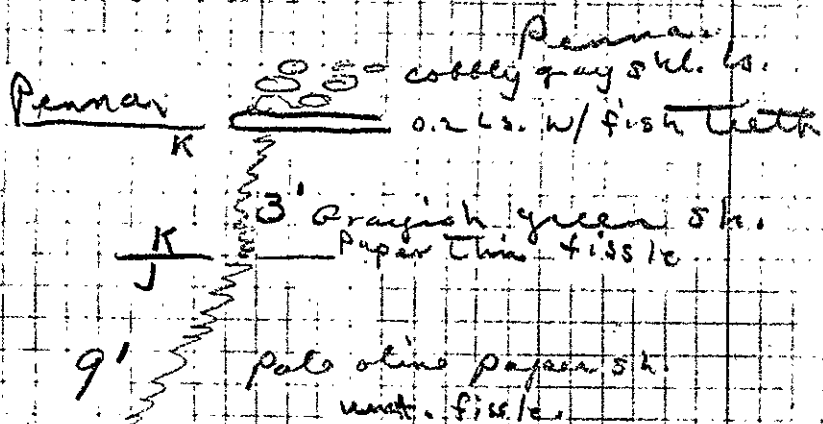 Pennar
cobbly gray skl. ls.
Pennar
K
0.2 Ls. w/ fish teeth
3' Grayish green sh.
K
J
Paper thin fissle
9'
pale olive paper sh.
fissle.